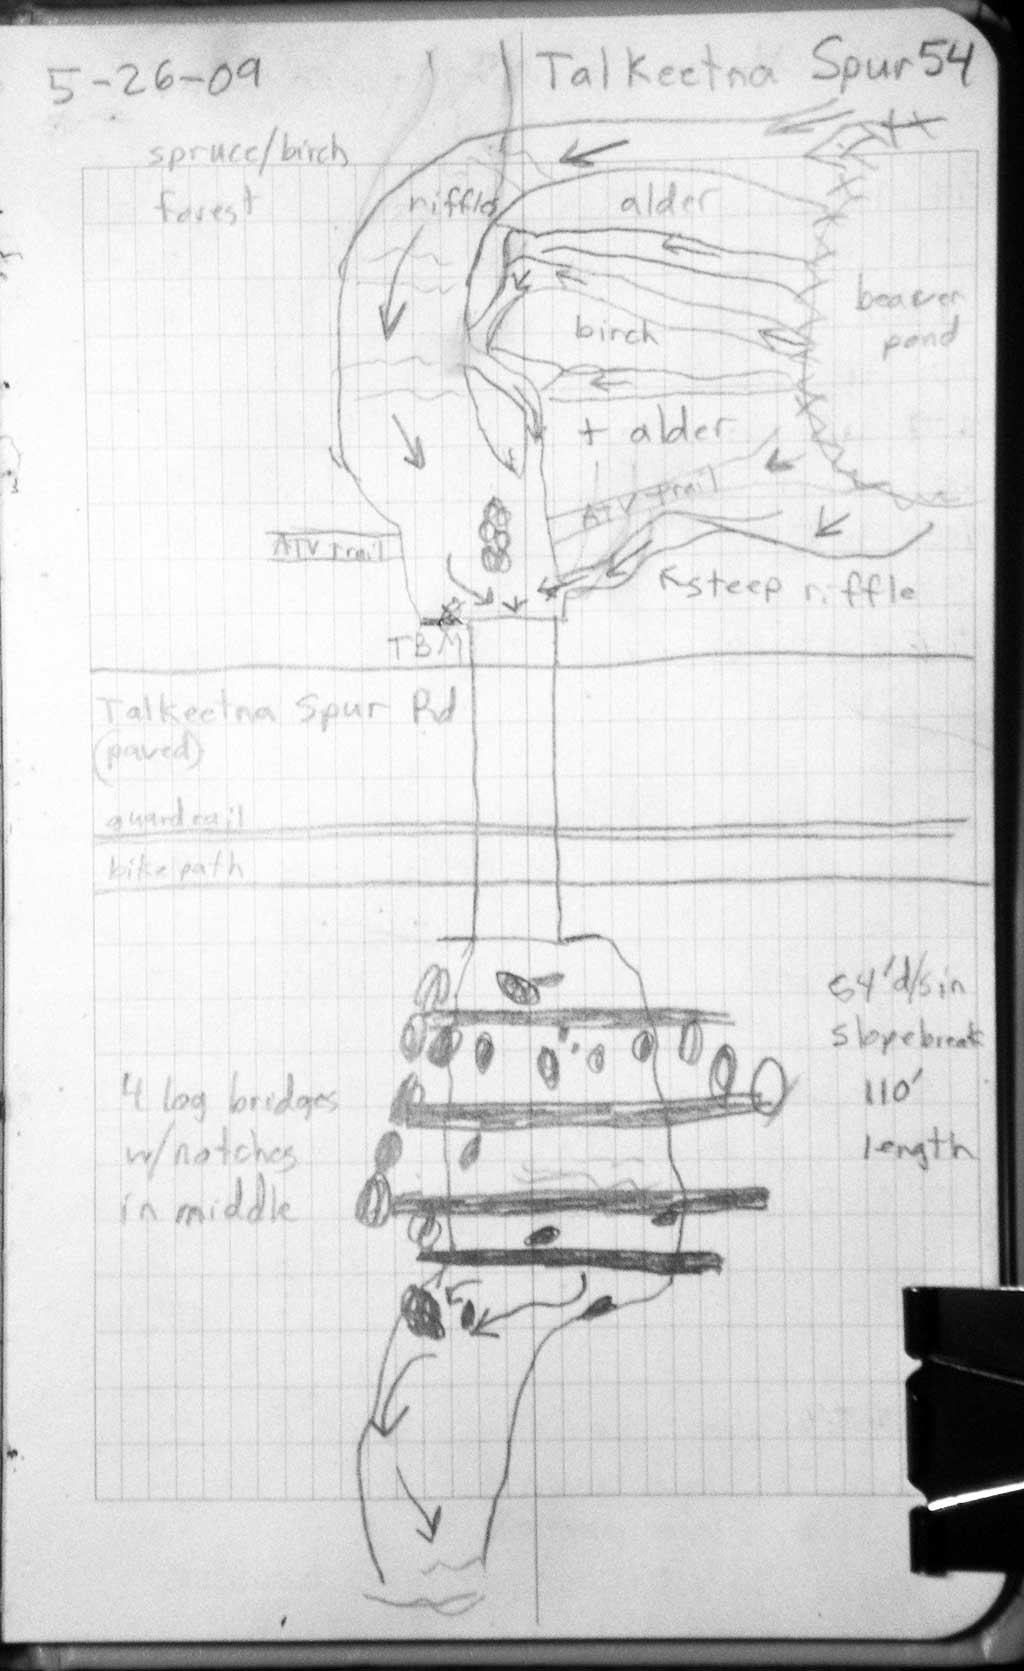 5-26-09
Talkeetna Spur 54
spruce/birch
forest
riffles
alder
beaver
pond
birch
+ alder
ATV trail
ATV trail
steep riffle
TBM
Talkeetna Spur Rd
(paved)
guardrail
bike path
64' d/s in
slopebreak
110'
length
4 log bridges
w/notches
in middle